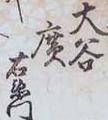 大谷
廣
右衛門